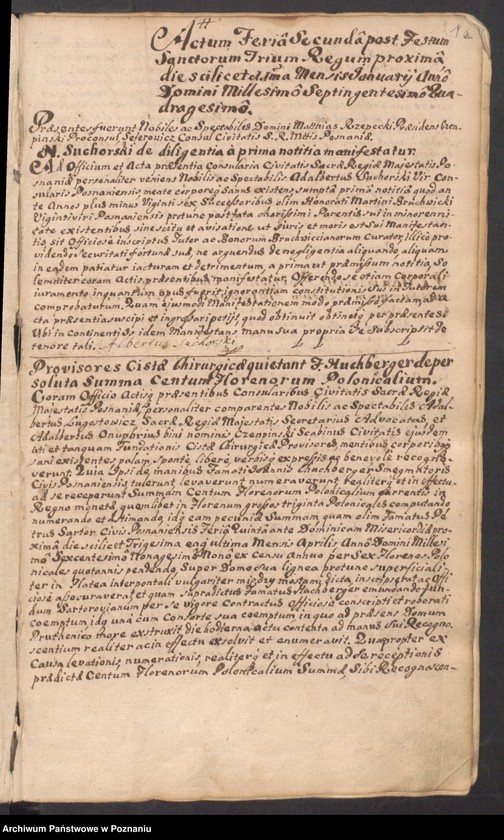 1
Actum Feriâ Secundâ post Festum
Sanctorum Trium Regum proximâ
die scilicet ima Mensis Januarij Annô
Domini Millesimô Septingentesimô Qua-
dragesimô.
Præsentes fuerunt Nobiles ac Spectabiles Domini Matthias Rzepecki Præsidens
pinski Proconsul Seferowicz Consul Civitatis S. R. Mttis Posnaniæ.
N. Suchorski de diligentia à prima notitia manifestatur.
Ad Officium et Acta præsentia Consularia Civitatis Sacræ Regiæ Majestatis Po-
snaniæ personaliter veniens Nobilis ac Spectabilis Adalbertus Suchorski Vir Con-
sularis Posnaniensis, mente corporeq sanus existens, sumptâ primâ notitiâ quod an-
te Annos plus minus Viginti sex Successoribus olim Honorati Martini Bruchwicki
Vigintiviri Posnaniensis protunc post fata charissimi Parentis sui in minorenni-
tate existentibus sine scitu et avisatione ut juris et moris est sui Manifestan-
tis sit Officiose inscriptus Tutor ac Bonorum Bruchwiccianorum Curator, illicô pro-
videndo securitati fortunæ suæ, ne arguendus de negligentia aliquando, aliquam
in eadem patiatur iacturam et detrimentum, a prima ut præmissum notitia, So-
lemniter coram Actis præsentibus manifestatur, Offerendo se etiam Corporali
iuramento inquantum opus fuerit, ignorantiam constitutionis sui in Tutorem
Comprobaturum. Quam eiusmodi Manifestationem modo præmisso factam, ad A-
cta præsentia suscipi et ingrossari petijt, quod obtinuit obtinetq per præsentes.
Ubi in Continenti idem Manifestans manu sua propria se Subscripsit de
tenore tali. Albertus Suchorski
Provisores Cistæ Chirurgicæ quietant F. Huchberger de per
soluta Summa Centum Florenorum Polonicalium.
Coram Officio Actisq præsentibus Consularibus Civitatis Sacræ Regiæ
Majestatis Posnaniæ, personaliter comparentes Nobilis ac Spectabiles Adal-
bertus Lugatowicz, Sacræ Regiæ Majestatis Secretarius Advocatus et
Adalbertus Onuphrius bini nominis Czempinski Scabinus Civitatis ejusdem
uti et tanquam Fundationis Cistæ Chirurgicæ Provisores, mentibus corporibusq
sani existentes palam, sponte, libere, verbisq expressis ac benevole recogno-
verunt. Quia Ipsi de manibus Famati Joannis Huchberger Smegmktoris
Civis Posnaniensis tulerunt, levaverunt, numeraverunt, realiterq et in effectu
ad se receperunt Summam Centum Florenorum Polonicalium currentis in
Regno monetæ, quemlibet in Florenum grossos triginta Polonicales computando
numerando et æstimando, idq eam pecuniæ Summam quam olim Famatus Pe-
trus Sartor Civis Posnaniensis Feriâ Quintâ ante Dominicam Misericordiæ pro-
ximâ die scilicet Trigesima eaq ultima Mensis Aprilis Annô Domini Millesi-
mô Sexcentesimô Nonagesimô Nonô ex Censu Annuo per Sex Florenos Polo-
nicales quotannis pendendo, Super Domo sua lignea protunc superficiali-
ter in Platea interpontali vulgariter między mostami dicta, inscripserat ac Offi-
ciosè assecuraverat, et quam supradictus Famatus Huchberger emundo fun-
dum Sartorovianum per se vigore Contractus Officiose conscripti et roborati
coemptum, idq unâ cum Consorte sua coemptum, in quo ad præsens Domum
Pruthenico more extruxit, die hodierna actu contenta ad manus sui Recogno-
scentium realiter ac in effectu exsolvit et enumeravit. Quapropter ex
Causa levationis, numerationis, realiterq et in effectu ad se receptionis
prædictæ Centum Florenorum Polonicalium Summæ, Sibi Recognoscen-
Archiwum Państwowe w Poznaniu
www.szukajwarchiwach.gov.pl